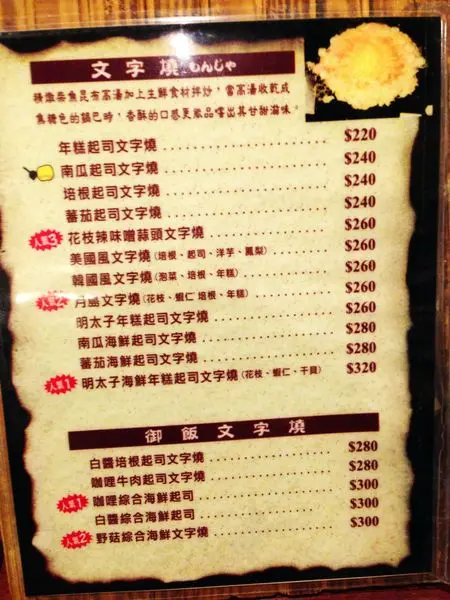 文字燒 もんじゃ
精燉柴魚昆布高湯加上生鮮食材拌炒，當高湯收乾成
焦糖色的鍋巴時，香酥的口卷更能品嚐出其甘甜滋味。
年糕起司文字燒 $220
南瓜起司文字燒 $240
培根起司文字燒 $240
蕃茄起司文字燒 $240
人氣3 花枝辣味噌蒜頭文字燒 $260
美國風文字燒(培根、起司、洋芋、鳳梨) $260
韓國風文字燒(泡菜、培根、年糕) $260
人氣2 月島文字燒(花枝、蝦仁 培根、年糕) $260
明太子年糕起司文字燒 $260
南瓜海鮮起司文字燒 $280
蕃茄海鮮起司文字燒 $280
人氣1 明太子海鮮年糕起司文字燒(花枝、蝦仁、干貝) $320
御飯文字燒
白醬培根起司文字燒 $280
咖哩牛肉起司文字燒 $280
人氣1 咖哩綜合海鮮起司 $300
白醬綜合海鮮起司 $300
人氣2 野菇綜合海鮮文字燒 $300